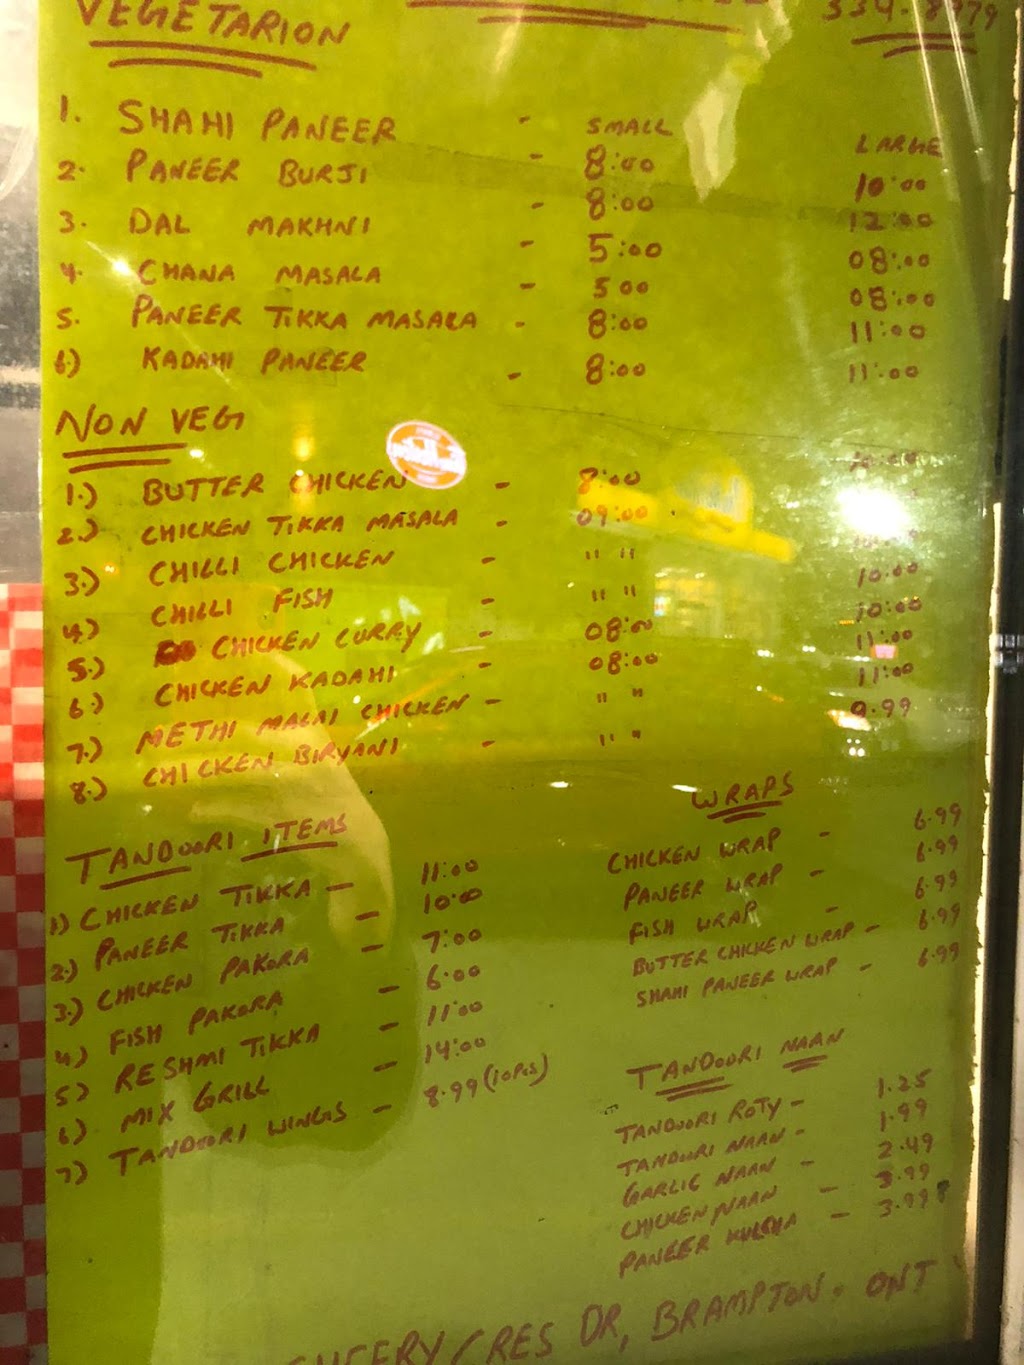 VEGETARION
334-8979
SMALL LARGE
1. SHAHI PANEER - 8:00 10:00
2. PANEER BURJI - 8:00 12:00
3. DAL MAKHNI - 5:00 08:00
4. CHANA MASALA - 500 08:00
5. PANEER TIKKA MASALA - 8:00 11:00
6.) KADAHI PANEER - 8:00 11:00
NON VEG
1.) BUTTER CHICKEN - 8:00
2.) CHICKEN TIKKA MASALA - 09:00
3.) CHILLI CHICKEN - " " 10.00
4.) CHILLI FISH - " " 10:00
5.) CHICKEN CURRY - 08:00 11:00
6.) CHICKEN KADAHI - 08:00 11:00
7.) METHI MALAI CHICKEN - " " 9.99
8.) CHICKEN BIRYANI - " "
TANDOORI ITEMS
1) CHICKEN TIKKA - 11:00
2.) PANEER TIKKA - 10:00
3.) CHICKEN PAKORA - 7:00
4) FISH PAKORA - 6:00
5) RESHMI TIKKA - 11:00
6) MIX GRILL - 14:00
7) TANDOORI WINGS - 8.99 (10 PCS)
WRAPS
CHICKEN WRAP - 6.99
PANEER WRAP - 6.99
FISH WRAP - 6.99
BUTTER CHICKEN WRAP - 6.99
SHAHI PANEER WRAP - 6.99
TANDOORI NAAN
TANDOORI ROTY - 1.25
TANDOORI NAAN - 1.99
GARLIC NAAN - 2.49
CHICKEN NAAN - 3.99
PANEER KULCHA - 3.99
CRES DR, BRAMPTON. ONT